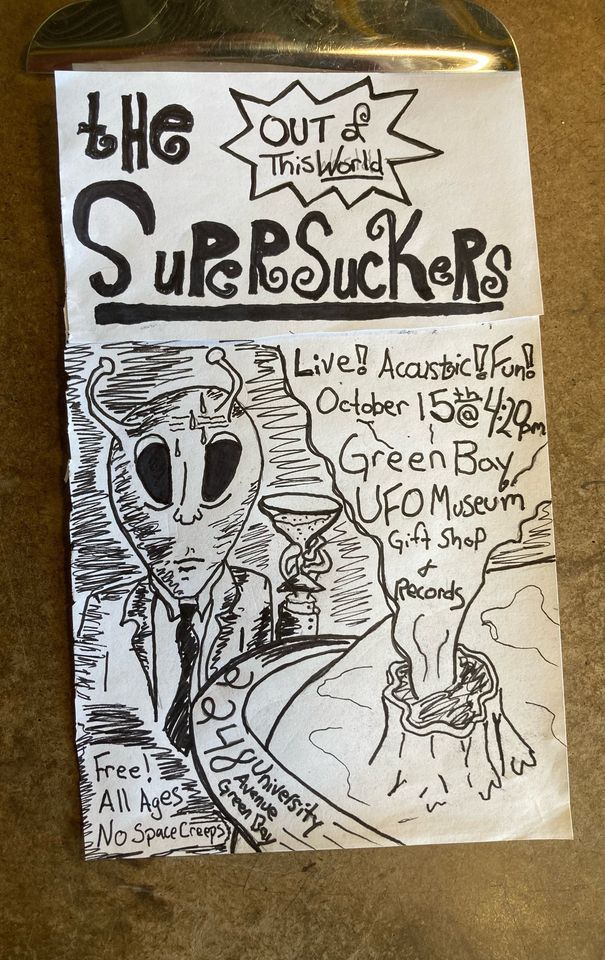 tHe
OUT of
This World
SUPeRSucKeRs
Live! Acoustic! Fun!
October 15th @ 4:20pm
Green Bay
UFO Museum
Gift Shop
&
Records
University
Avenue
Green Bay
Free!
All Ages
No Space Creeps